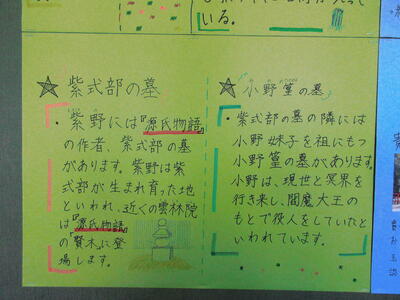 いる。
☆紫式部の墓
・紫野には『源氏物語』
の作者、紫式部の墓
があります。紫野は紫
式部が生まれ育った地
といわれ、近くの雲林院
は『源氏物語』
の『賢木』に登
場します。
☆小野篁の墓
・紫式部の墓の隣には
小野妹子を祖にもつ
小野篁の墓があります。
小野は、現世と冥界を
行き来し、閻魔大王の
もとで役人をしていたと
いわれています。